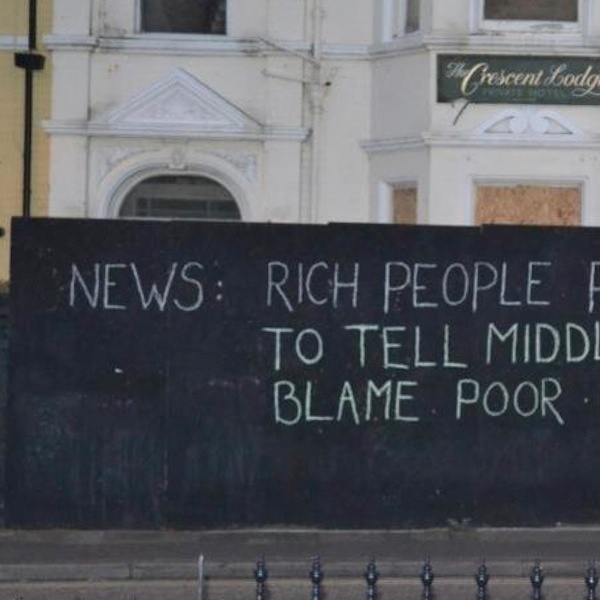 The Crescent Lodge
PRIVATE HOTEL
NEWS: RICH PEOPLE
TO TELL
BLAME POOR